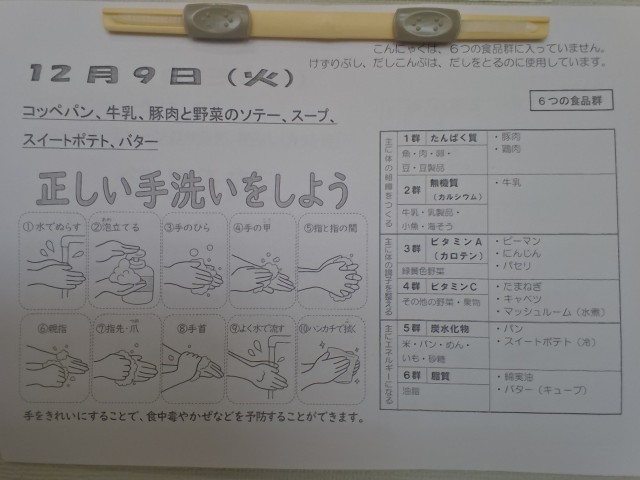 こんにゃくは、6つの食品群に入っていません。
けずりぶし、だしこんぶは、だしをとるのに使用しています。
12月9日(火)
コッペパン、牛乳、豚肉と野菜のソテー、スープ、
スイートポテト、バター
正しい手洗いをしよう
①水でぬらす ②泡立てる ③手のひら ④手の甲 ⑤指と指の間
⑥親指 ⑦指先・爪 ⑧手首 ⑨よく水で流す ⑩ハンカチで拭く
手をきれいにすることで、食中毒やかぜなどを予防することができます。
6つの食品群
主に体の組織をつくる
1群 たんぱく質
魚・肉・卵・
豆・豆製品
・豚肉
・鶏肉
2群 無機質
(カルシウム)
牛乳・乳製品・
小魚・海そう
・牛乳
主に体の調子を整える
3群 ビタミンA
(カロテン)
緑黄色野菜
・ピーマン
・にんじん
・パセリ
4群 ビタミンC
その他の野菜・果物
・たまねぎ
・キャベツ
・マッシュルーム(水煮)
主にエネルギーになる
5群 炭水化物
米・パン・めん・
いも・砂糖
・パン
・スイートポテト(冷)
6群 脂質
油脂
・綿実油
・バター(キューブ)